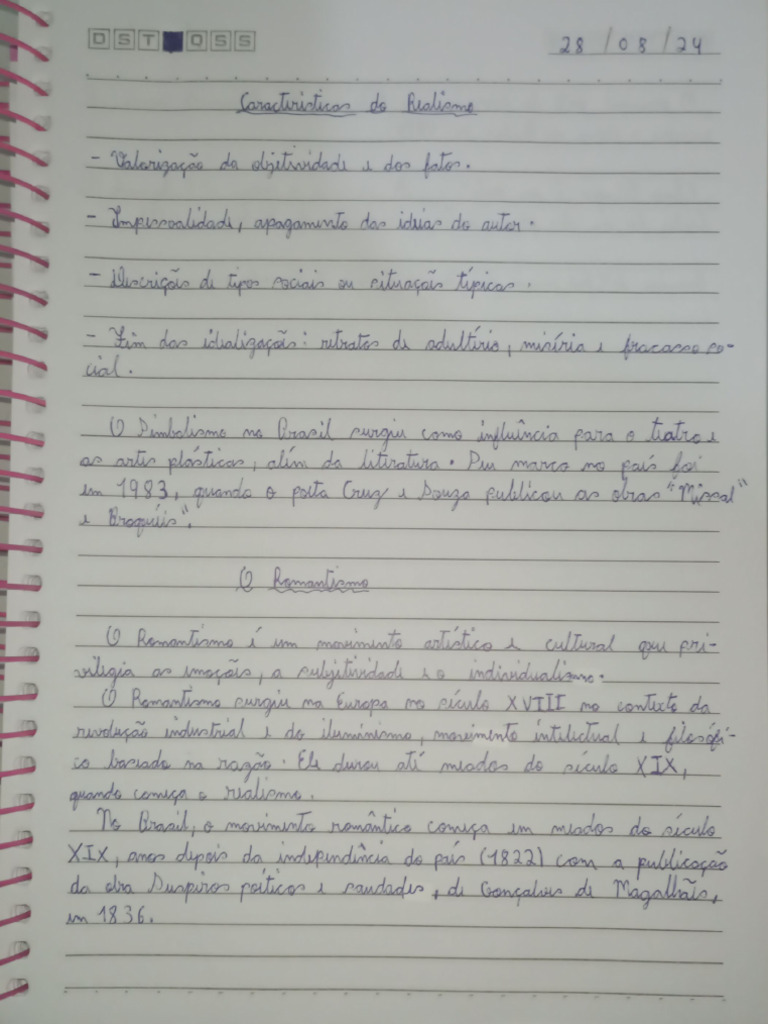 D S T Q S S
28 / 08 / 24
Características do Realismo
- Valorização da objetividade e dos fatos.
- Impessoalidade, apagamento das ideias do autor.
- Descrições de tipos sociais ou situações típicas.
- Fim das idealizações: retratos de adultério, miséria e fracasso so-
cial.
O Simbolismo no Brasil surgiu como influência para o teatro e
as artes plásticas, além da literatura. Seu marco no país foi
em 1983, quando o poeta Cruz e Souza publicou as obras "Missal"
e Broquéis".
O Romantismo
O Romantismo é um movimento artístico e cultural que pri-
vilegia as emoções, a subjetividade e o individualismo.
O Romantismo surgiu na Europa no século XVIII no contexto da
revolução industrial e do iluminismo, movimento intelectual e filosófi-
co baseado na razão. Ele durou até meados do século XIX,
quando começa o realismo.
No Brasil, o movimento romântico começa em meados do século
XIX, anos depois da independência do país (1822) com a publicação
da obra Suspiros poéticos e saudades, de Gonçalves de Magalhães,
em 1836.